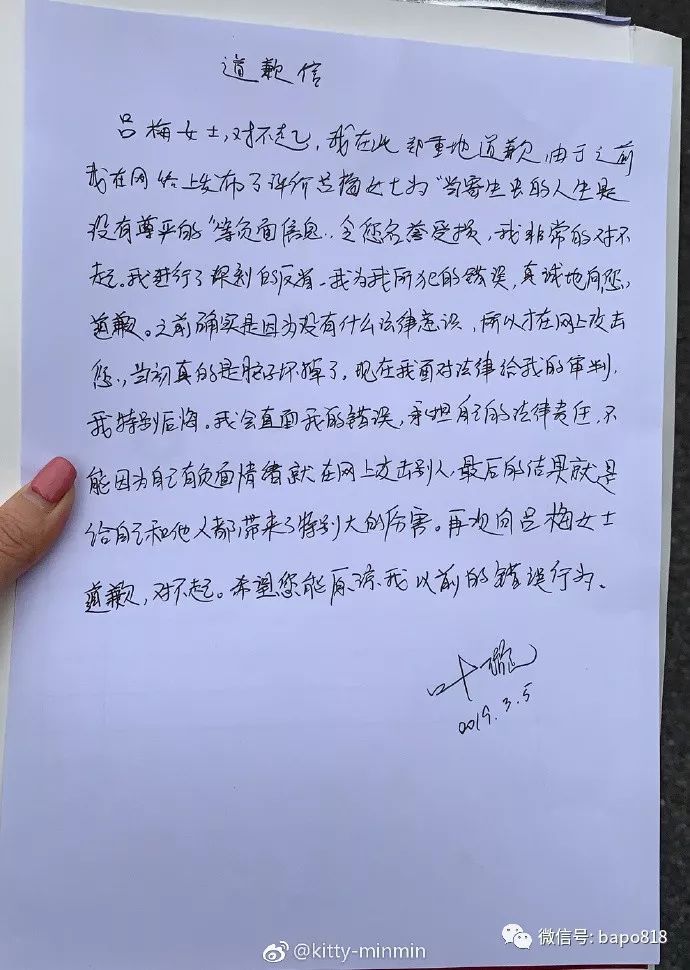 道歉信
吕梅女士，对不起，我在此郑重地道歉，由于之前
我在网络上发布了评价吕梅女士为“当寄生虫的人生是
没有尊严的”等负面信息..令您名誉受损，我非常的对不
起。我进行了深刻的反省、我为我所犯的错误，真诚地向您，
道歉。之前确实是因为没有什么法律意识，所以才在网上攻击
您.，当初真的是脑子坏掉了，现在我面对法律给我的审判，
我特别后悔。我会直面我的错误，承担自己的法律责任，不
能因为自己有负面情绪就在网上攻击别人，最后的结果就是
给自己和他人都带来了特别大的厉害。再次向吕梅女士
道歉，对不起。希望您能原谅我以前的错误行为、
叶璇
2019.3.5
@kitty-minmin
微信号: bapo818